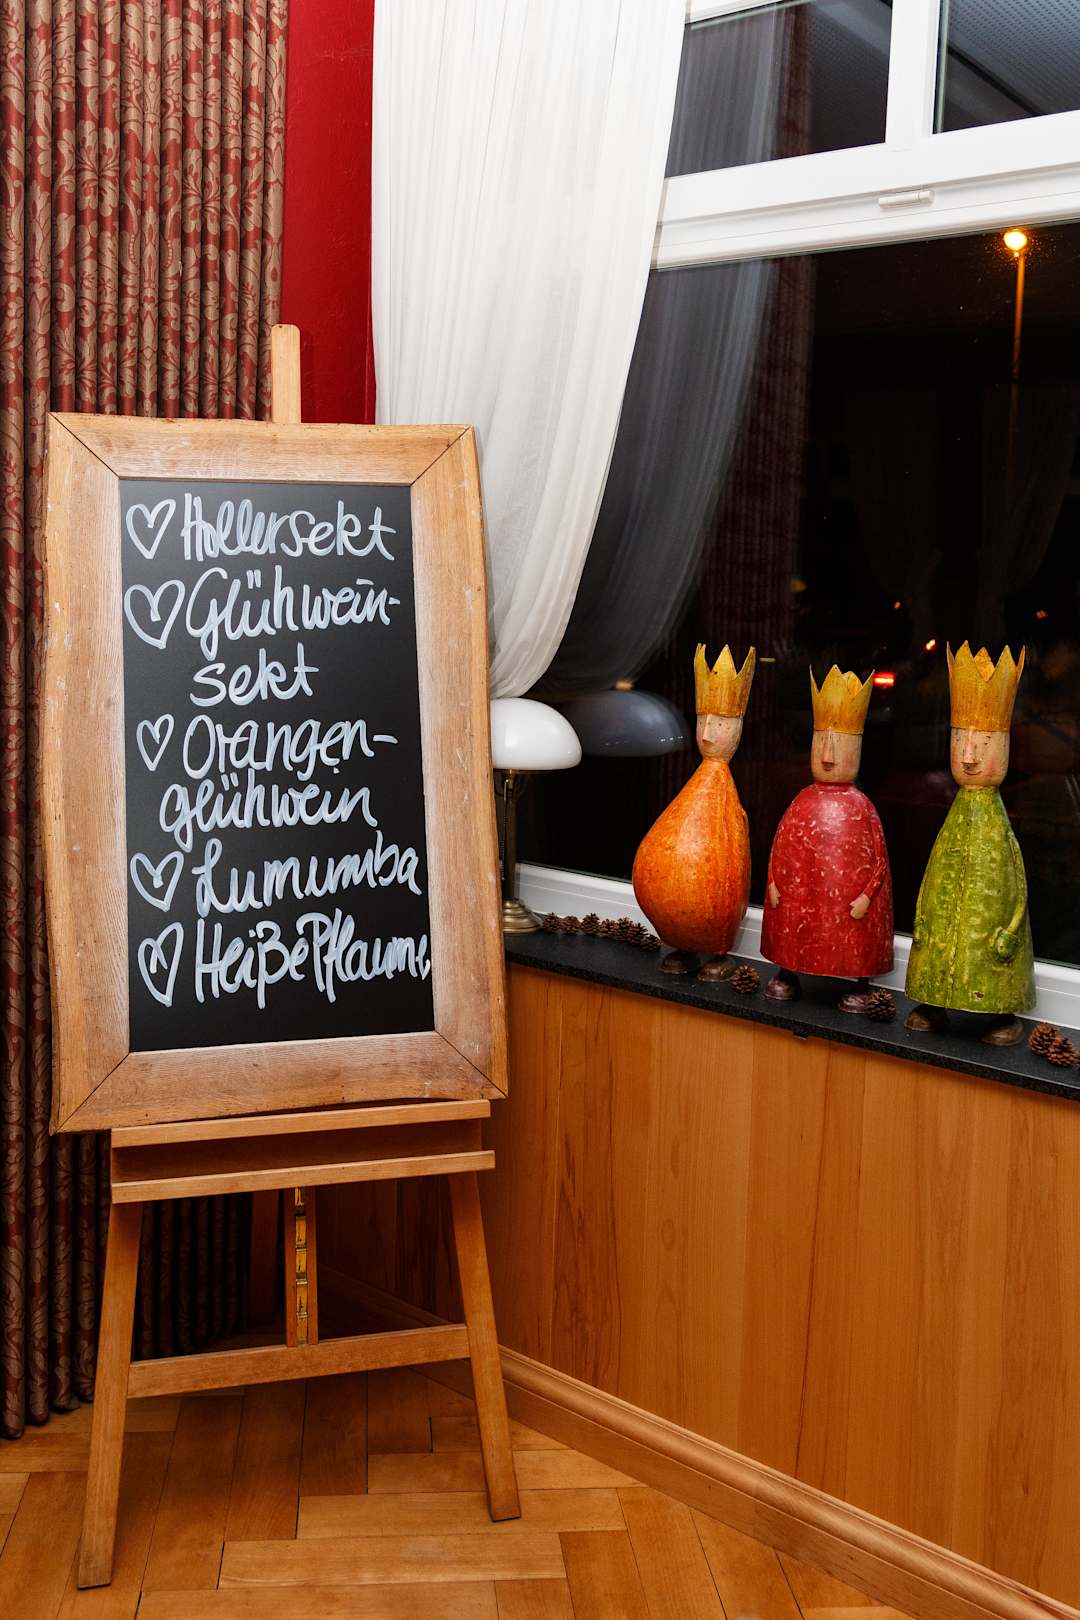 ♡ Hollersekt
♡ Glühwein-
sekt
♡ Orangen-
glühwein
♡ Lumumba
♡ Heiße Pflaume